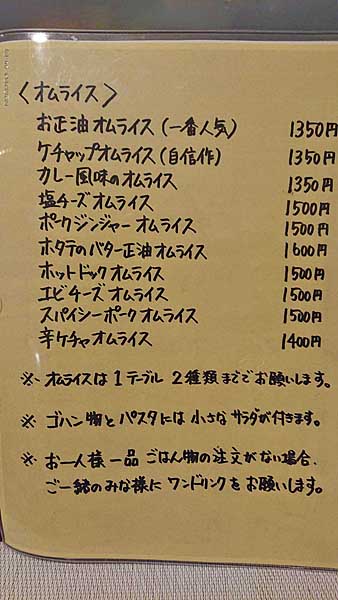 〈オムライス〉
お正油オムライス(一番人気) 1350円
ケチャップオムライス(自信作) 1350円
カレー風味のオムライス 1350円
塩チーズオムライス 1500円
ポークジンジャーオムライス 1500円
ホタテのバター正油オムライス 1600円
ホットドックオムライス 1500円
エビチーズオムライス 1500円
スパイシーポークオムライス 1500円
辛ケチャオムライス 1400円
※ オムライスは1テーブル2種類まででお願いします。
※ ゴハン物とパスタには小さなサラダが付きます。
※ お一人様一品ごはん物の注文がない場合、
ご一緒のみな様にワンドリンクをお願いします。